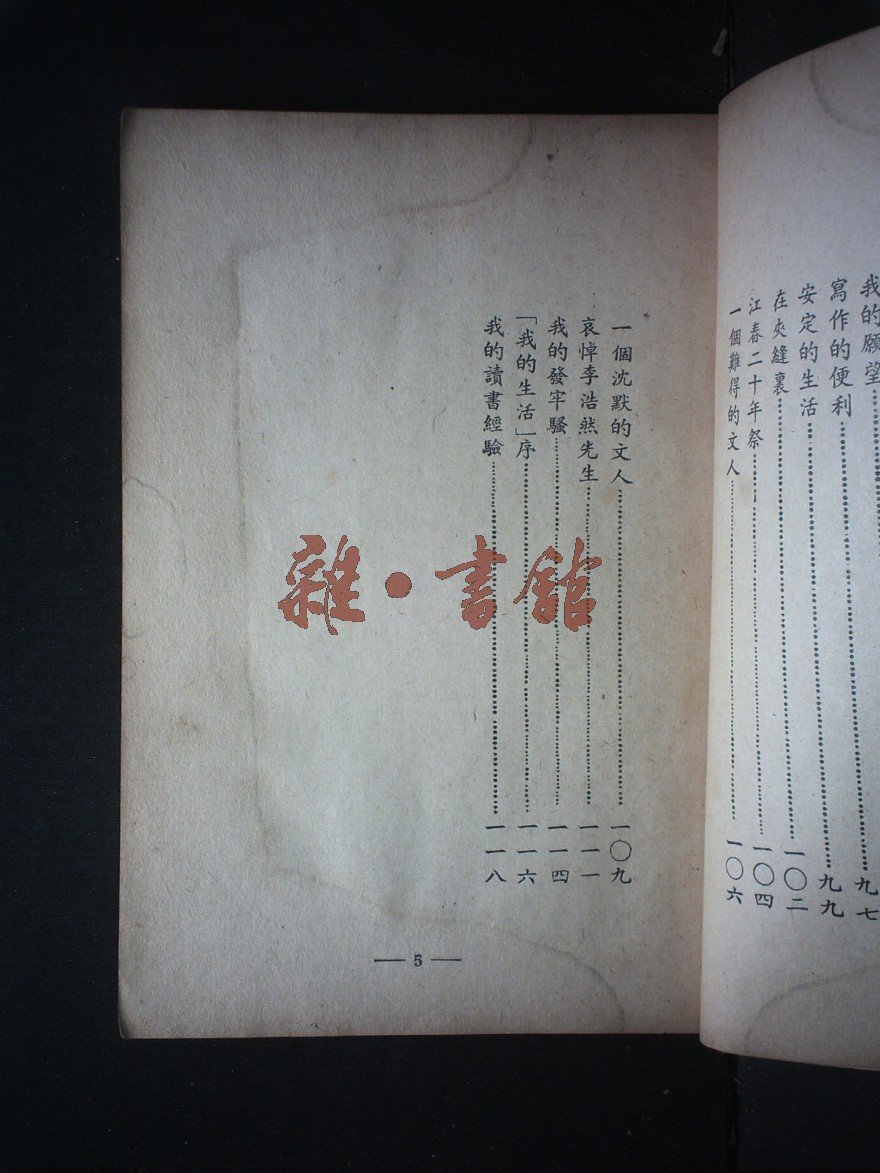 我的願望………九七
寫作的便利………九九
安定的生活………一〇二
在夾縫裏………一〇四
江春二十年祭………一〇六
一個難得的文人
一個沈默的文人………一〇九
哀悼李浩然先生………一一一
我的發牢騷………一一四
「我的生活」序………一一六
我的讀書經驗………一一八
— 5 —
雜•書館